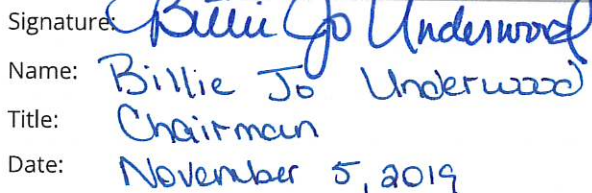 Signature: Billie Jo Underwood
Name: Billie Jo Underwood
Title: Chairman
Date: November 5, 2019